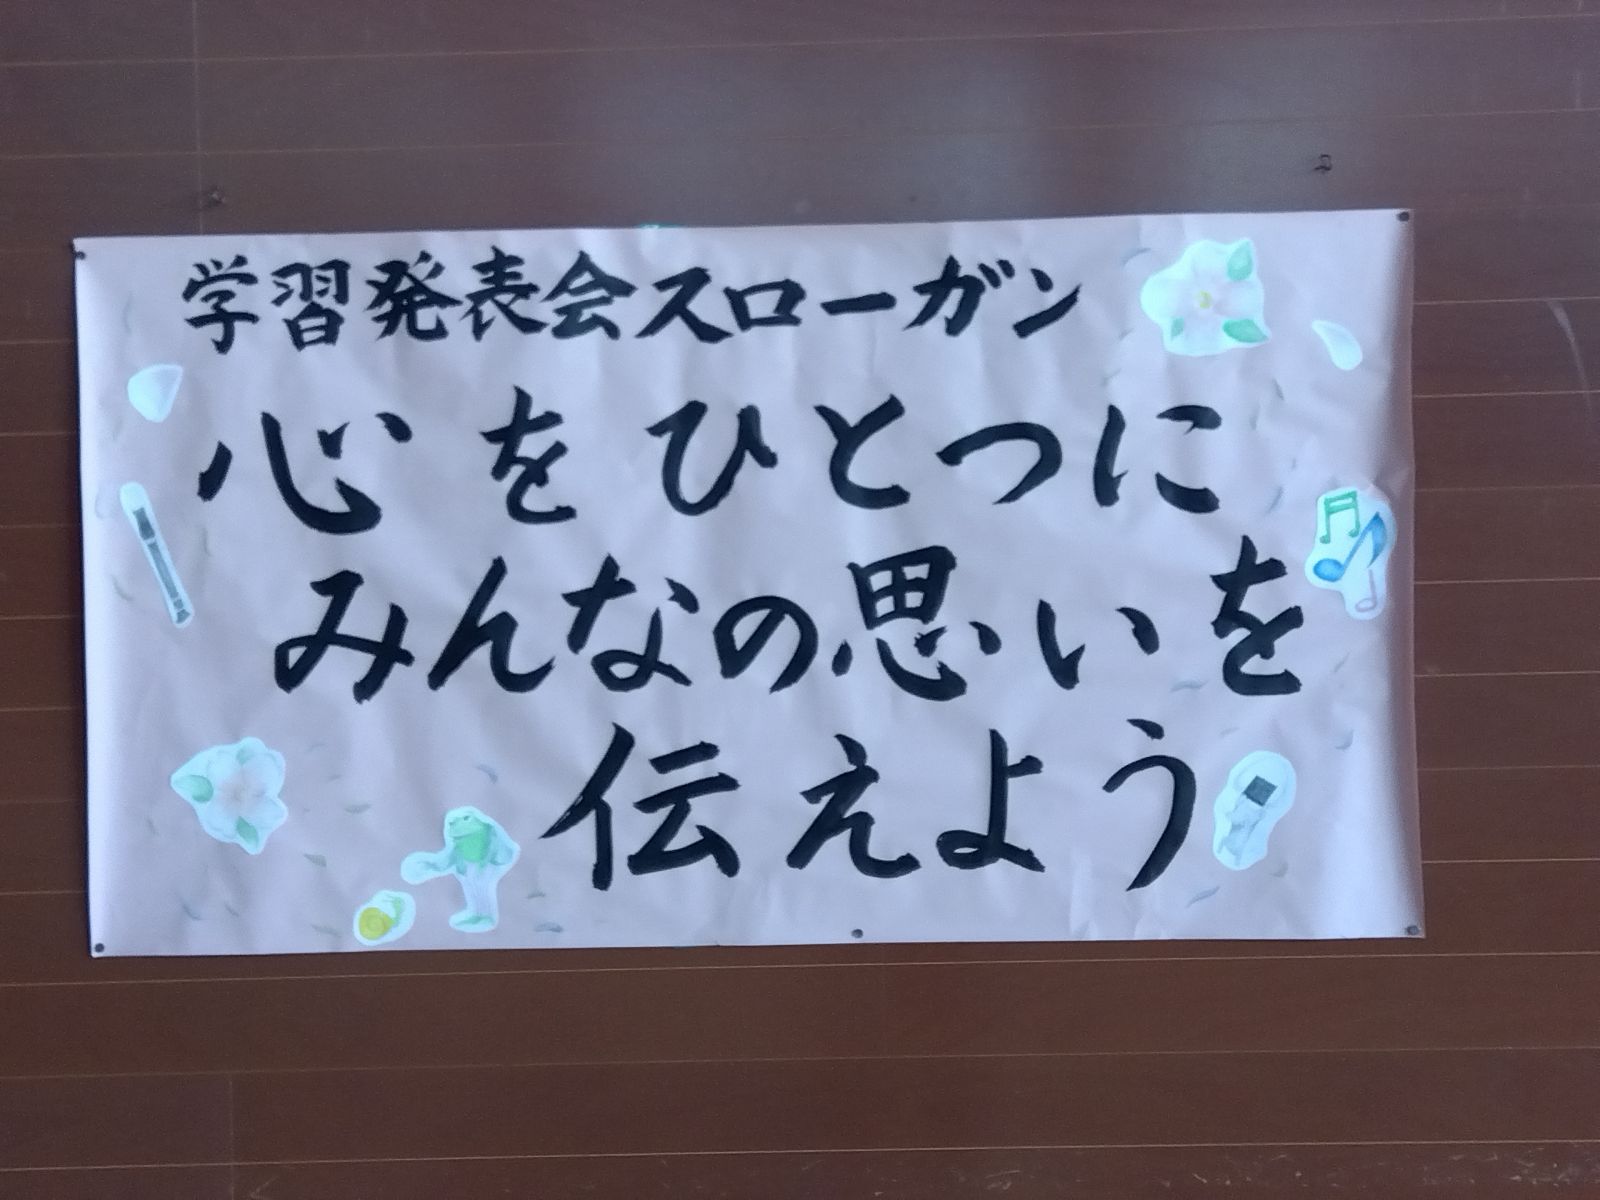 学習発表会スローガン
心をひとつに
みんなの思いを
伝えよう